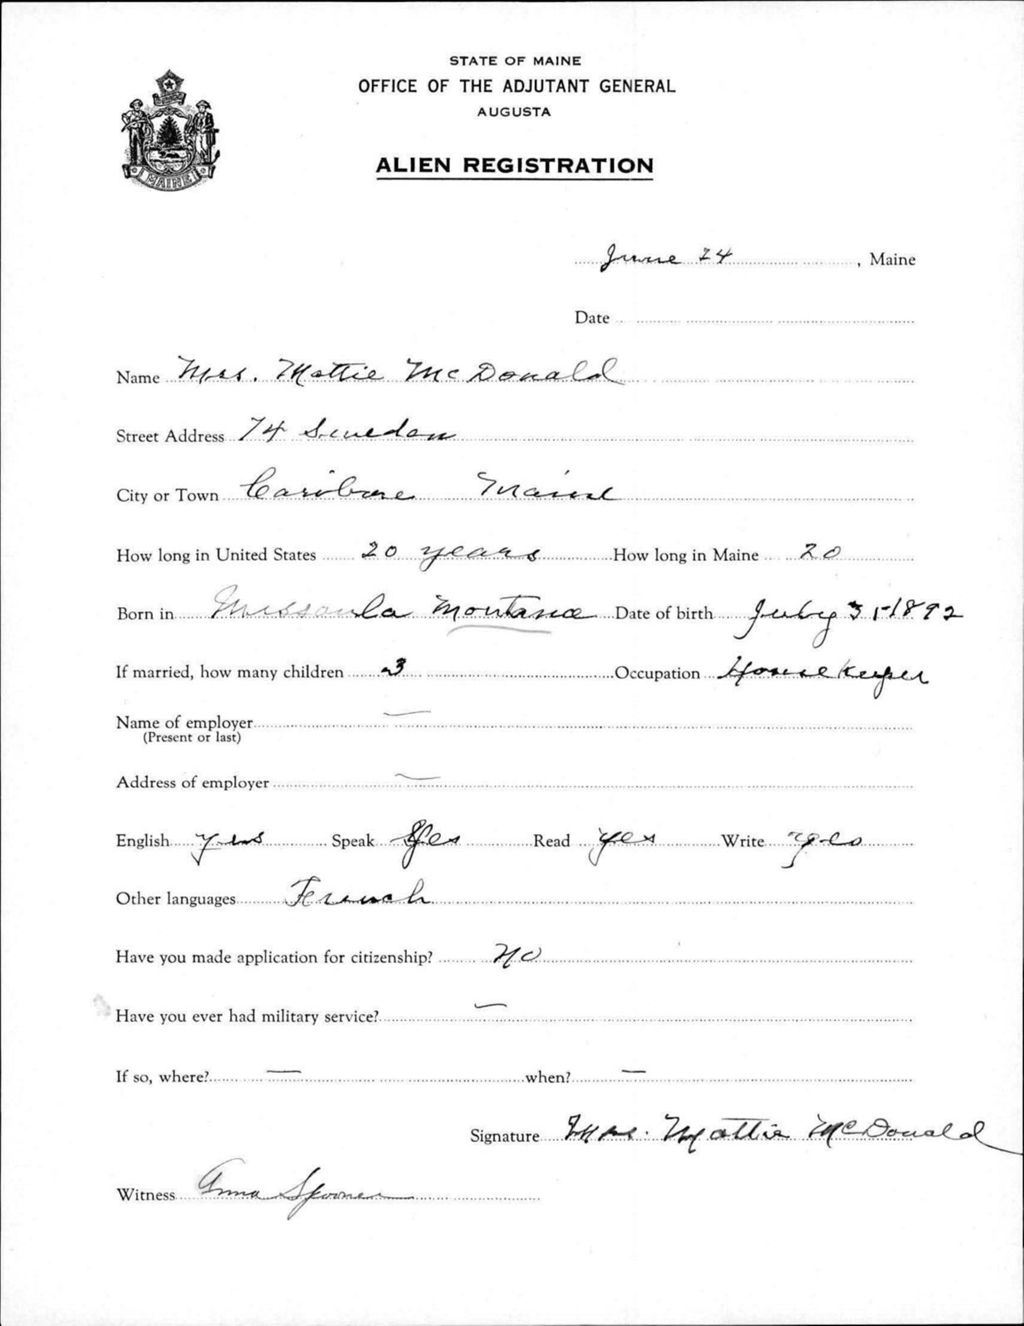 STATE OF MAINE
OFFICE OF THE ADJUTANT GENERAL
AUGUSTA
ALIEN REGISTRATION
MAINE
June 24, Maine
Date
Name Mrs. Mattie McDonald
Street Address 74 Sweden
City or Town Caribou Maine
How long in United States 20 years How long in Maine 20
Born in Missoula Montana Date of birth July 31-1892
If married, how many children 3 Occupation Housekeeper
Name of employer —
(Present or last)
Address of employer —
English yes Speak Yes Read yes Write yes
Other languages French
Have you made application for citizenship? No
Have you ever had military service? —
If so, where? — when? —
Signature Mrs. Mattie McDonald
Witness Anna Spooner